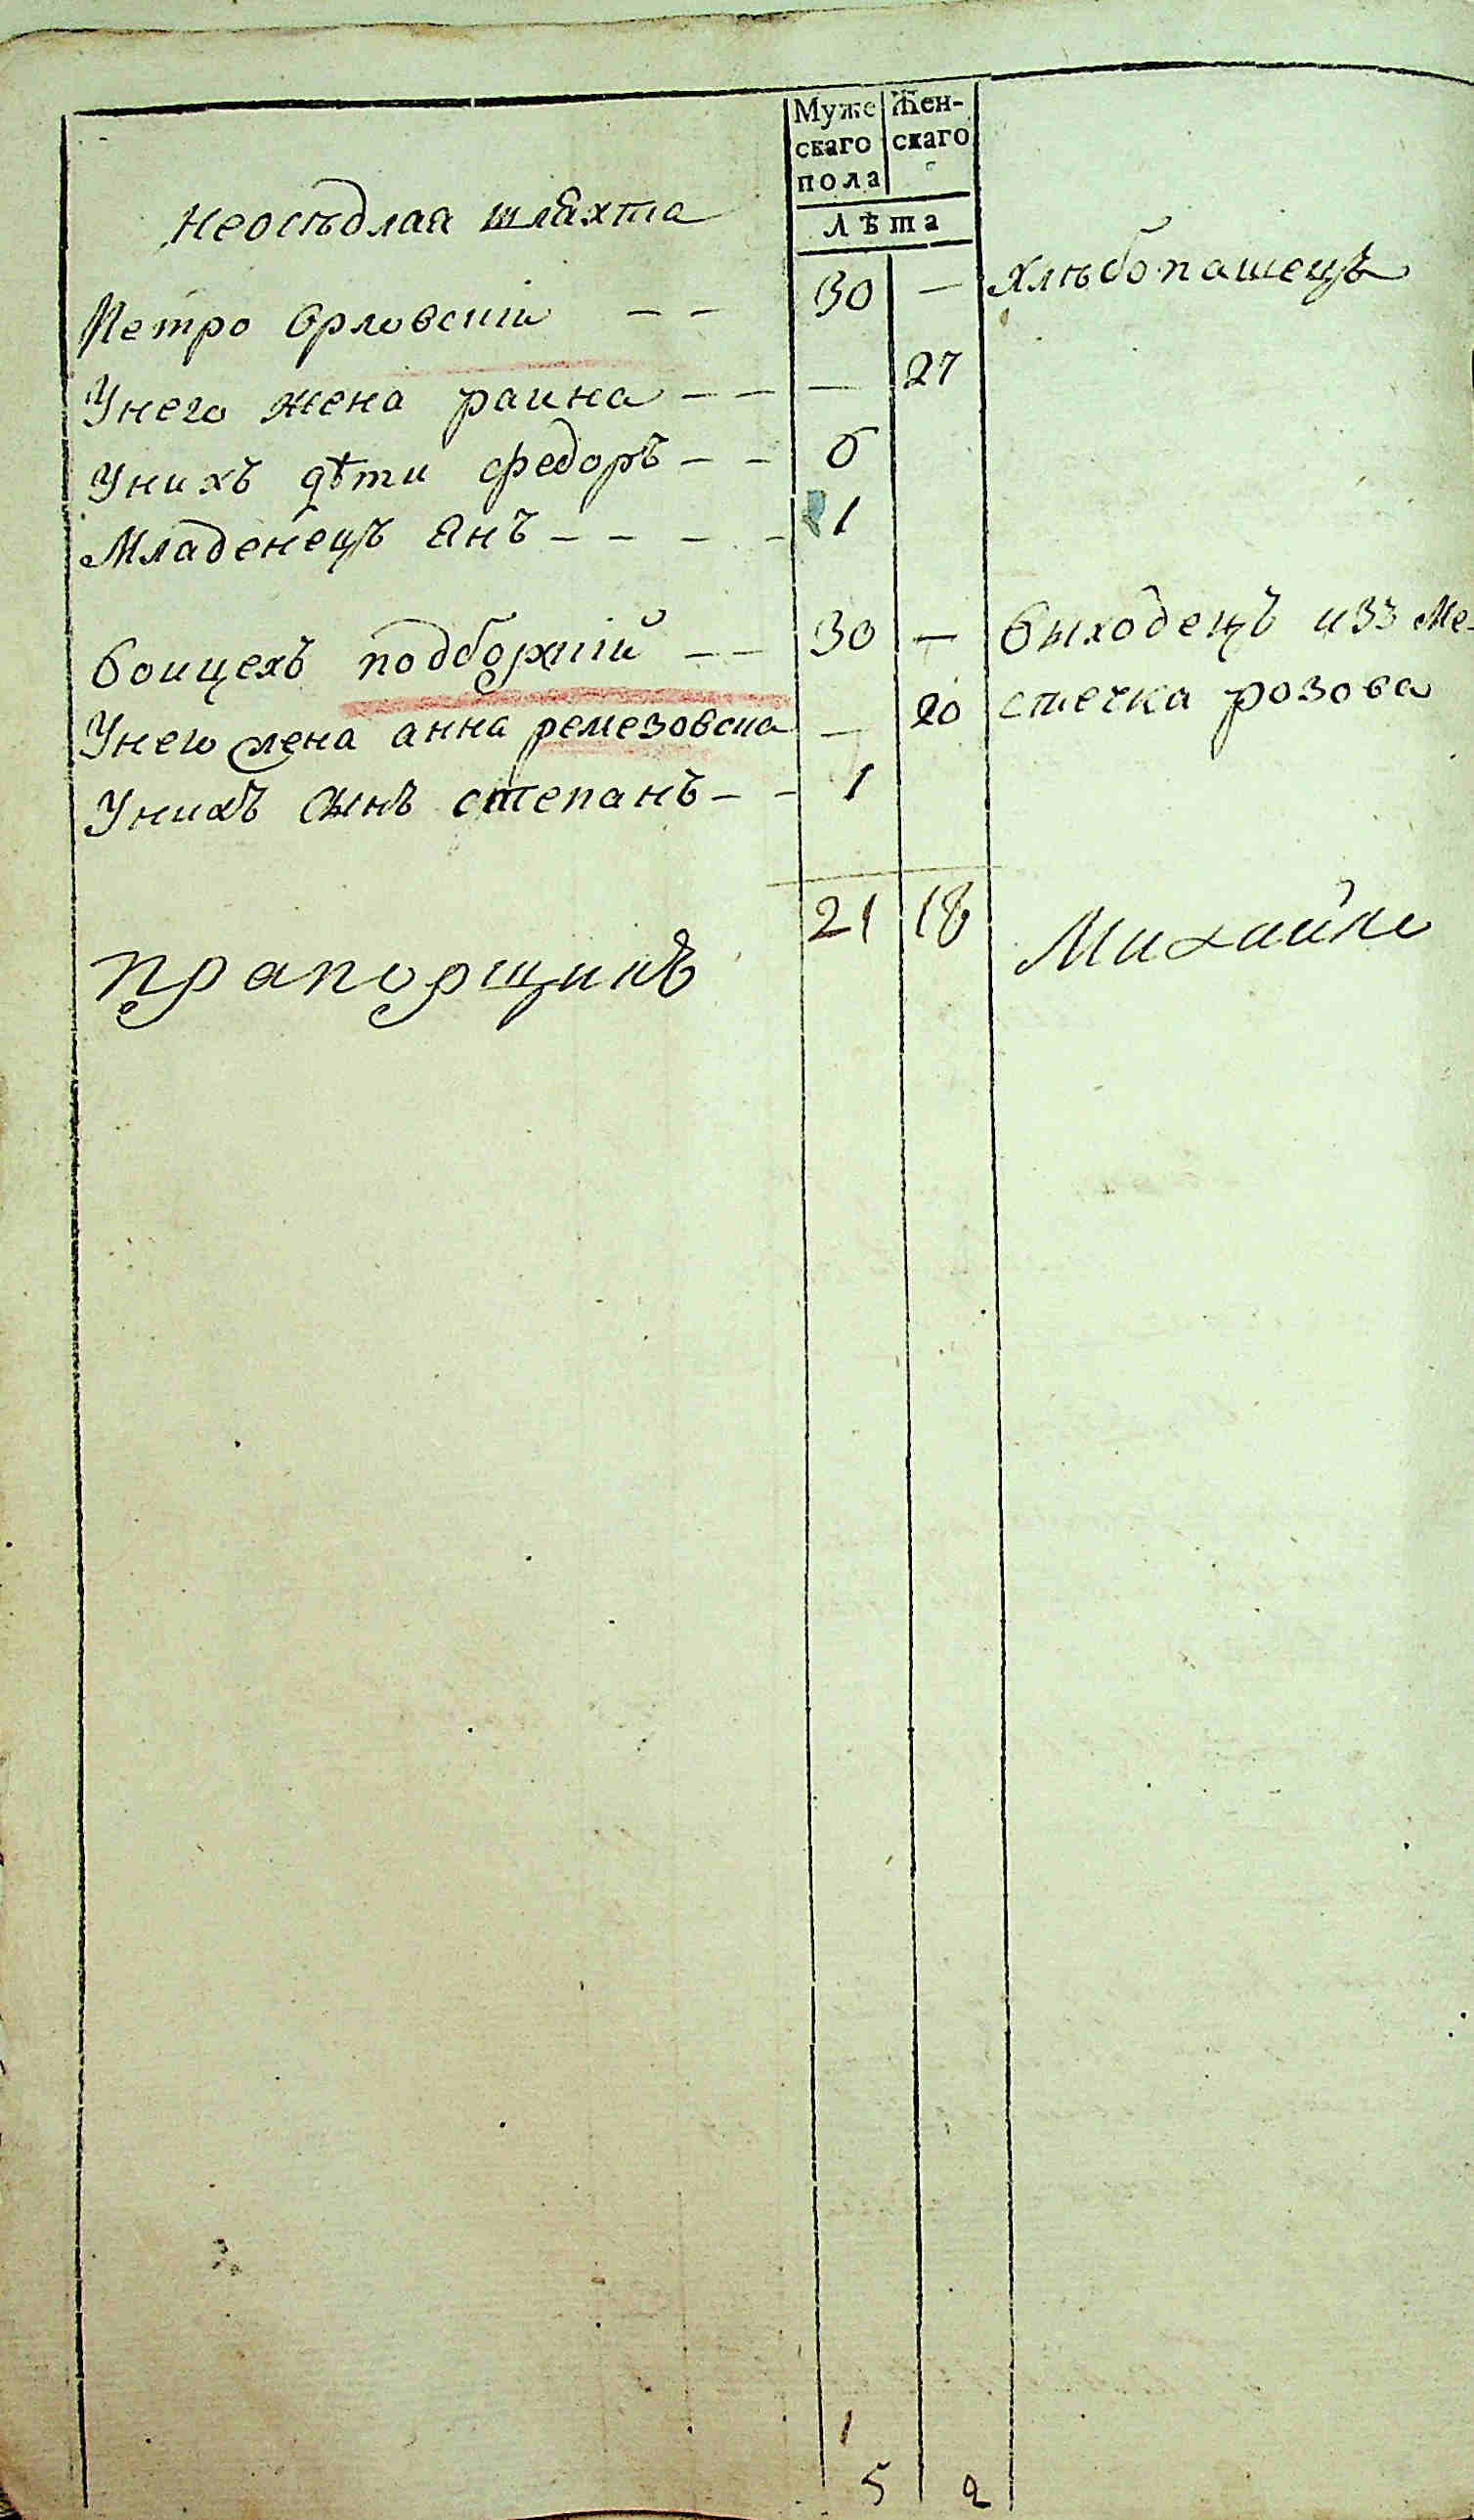 Муже Жен-
скаго скаго
пола
Лѣта
неосѣдлая шляхта
Петро Орловский — — 30 — хлѣбопашецъ
Унего жена раина — — — 27
Унихъ дѣти федоръ — — 6
Младенецъ Янъ — — — — 1
Воицехъ подборхпій — — 30 — Выходецъ изъ ме-
Унего жена анна ремезовска — 20 стечка розова
Унихъ сынъ степанъ — — 1
21 18
Прапорщикъ Михайло
1
5 2